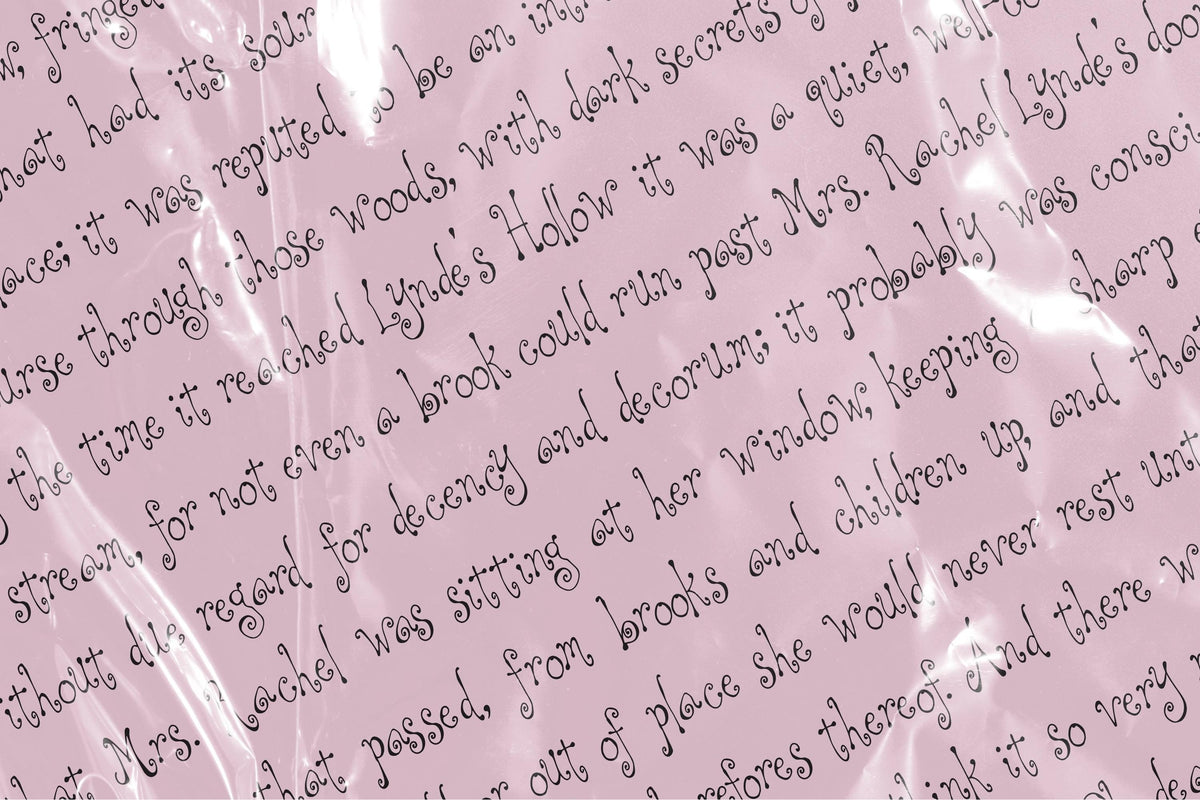 fringed
had its sour
lace; it was reputed to be an intr
urse through those woods, with dark secrets of
the time it reached Lynde's Hollow it was a quiet, well-co
stream, for not even a brook could run past Mrs. Rachel Lynde's doo
ithout due regard for decency and decorum; it probably was consci
hat Mrs. Rachel was sitting at her window, keeping sharp e
that passed, from brooks and children up, and tha
or out of place she would never rest unt
refores thereof. And there w
ink it so very
dea